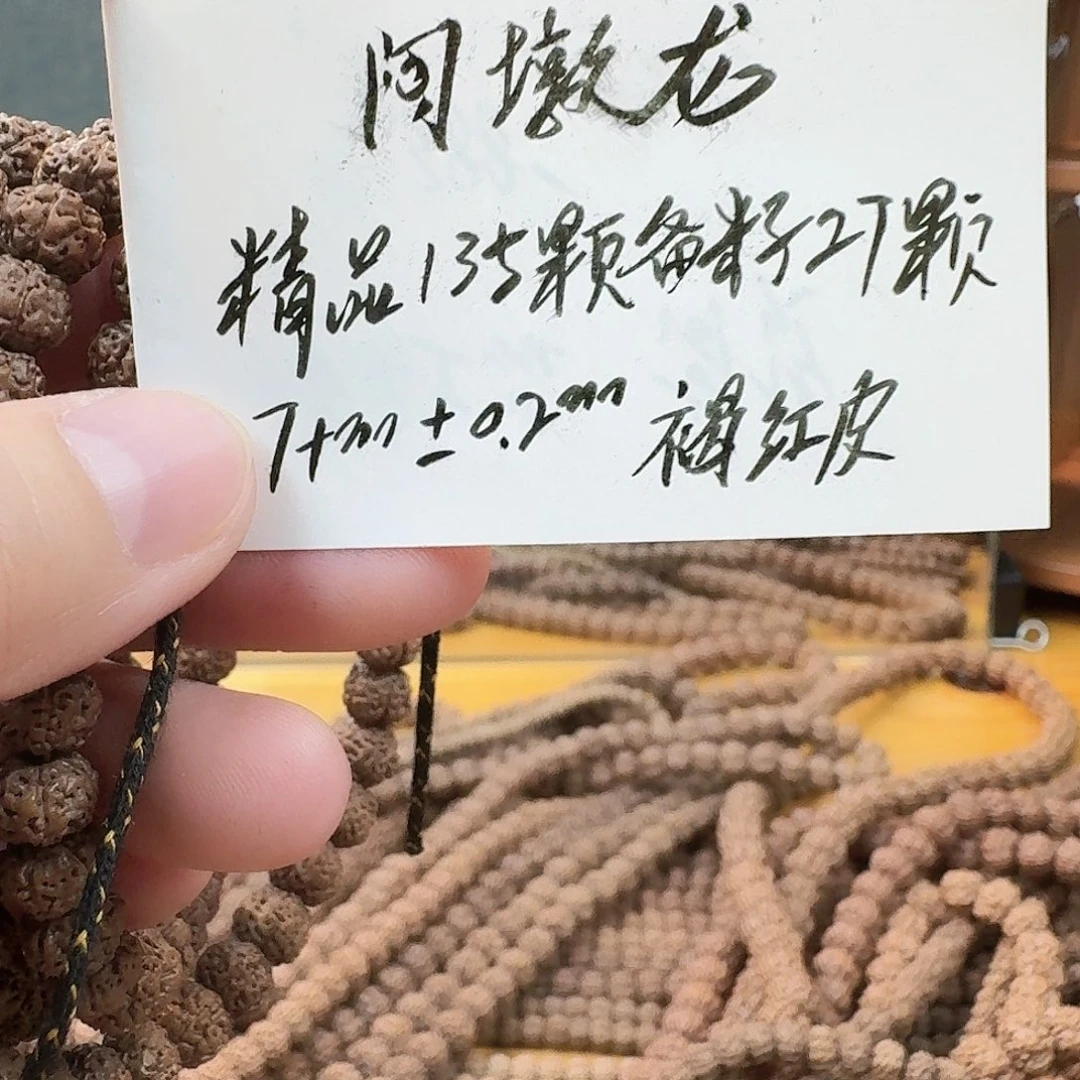 墩龙
精品135颗备籽27颗
7+mm ±0.2mm 褐红皮